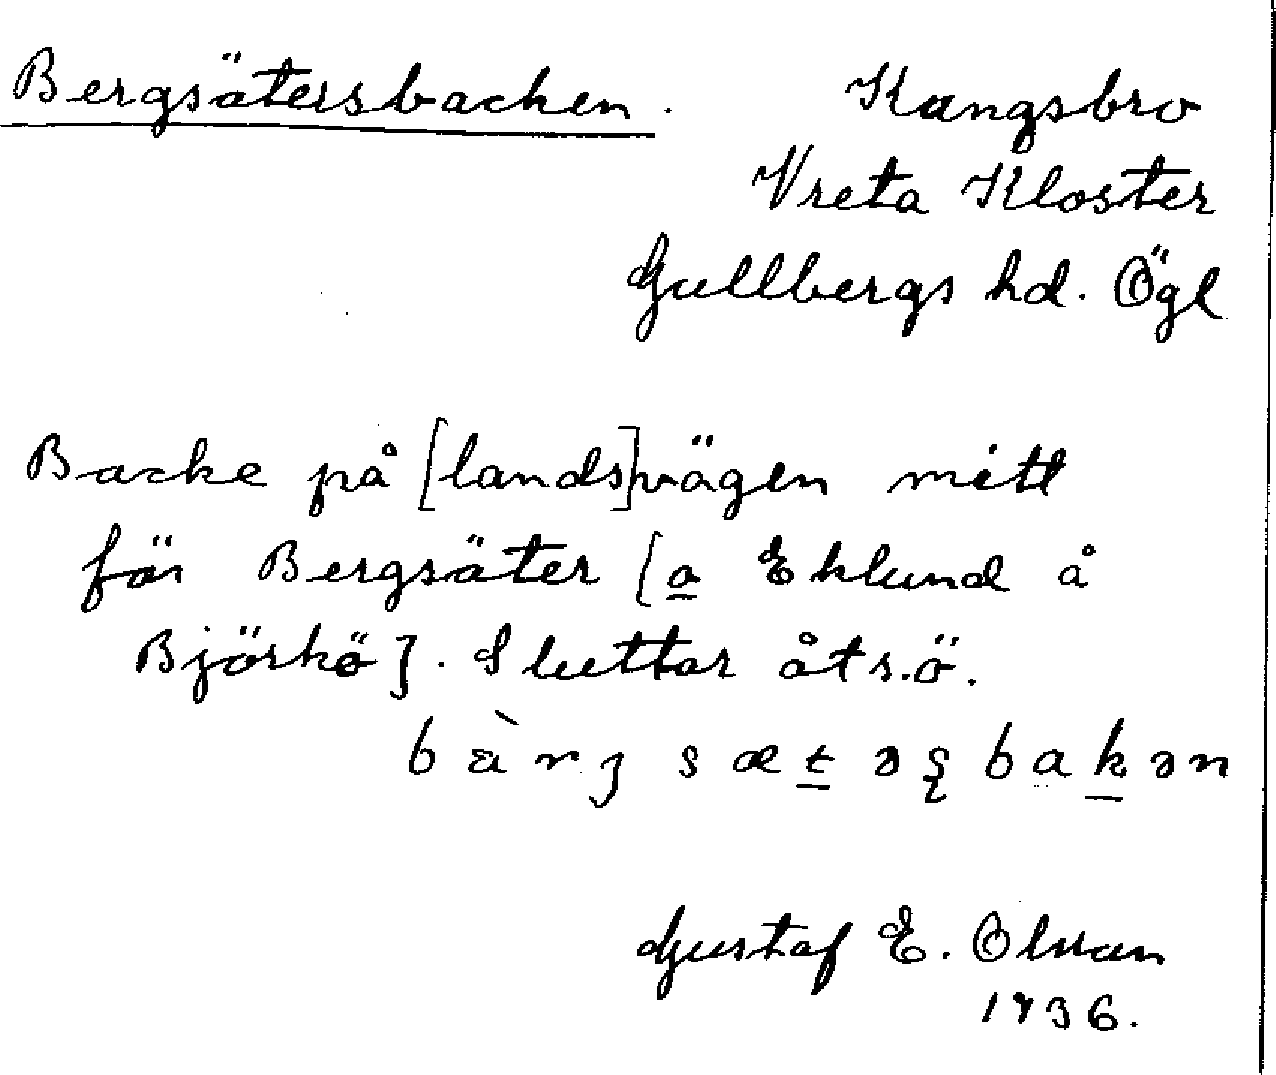 Bergsätersbacken. Kungsbro
Vreta Kloster
Gullbergs hd. Ögl
Backe på [lands]vägen mitt
för Bergsäter [a Eklund å
Björkö]. Sluttar åt s.ö.
Gustaf E. Olsson
1936.